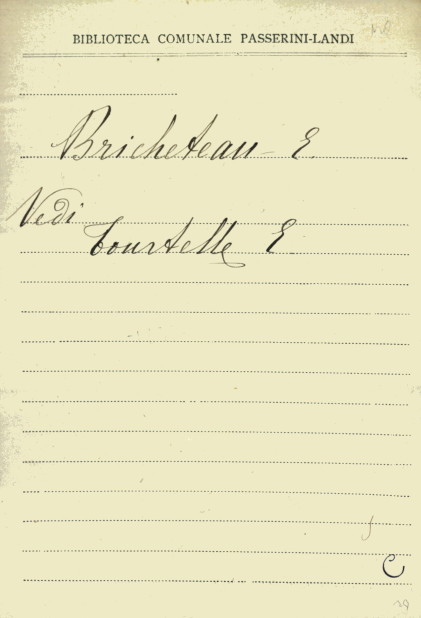 BIBLIOTECA COMUNALE PASSERINI-LANDI
Bricheteau E.
Vedi
Tourtelle E.
C